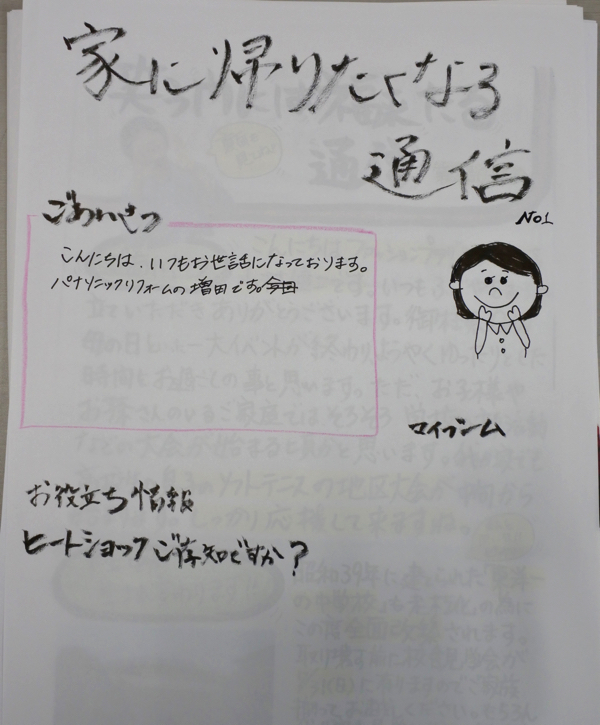 家に帰りたくなる
通信
No1
ごあいさつ
こんにちは、いつもお世話になっております。
パナソニックリフォームの増田です。今日
お役立ち情報
ヒートショックご存知ですか?